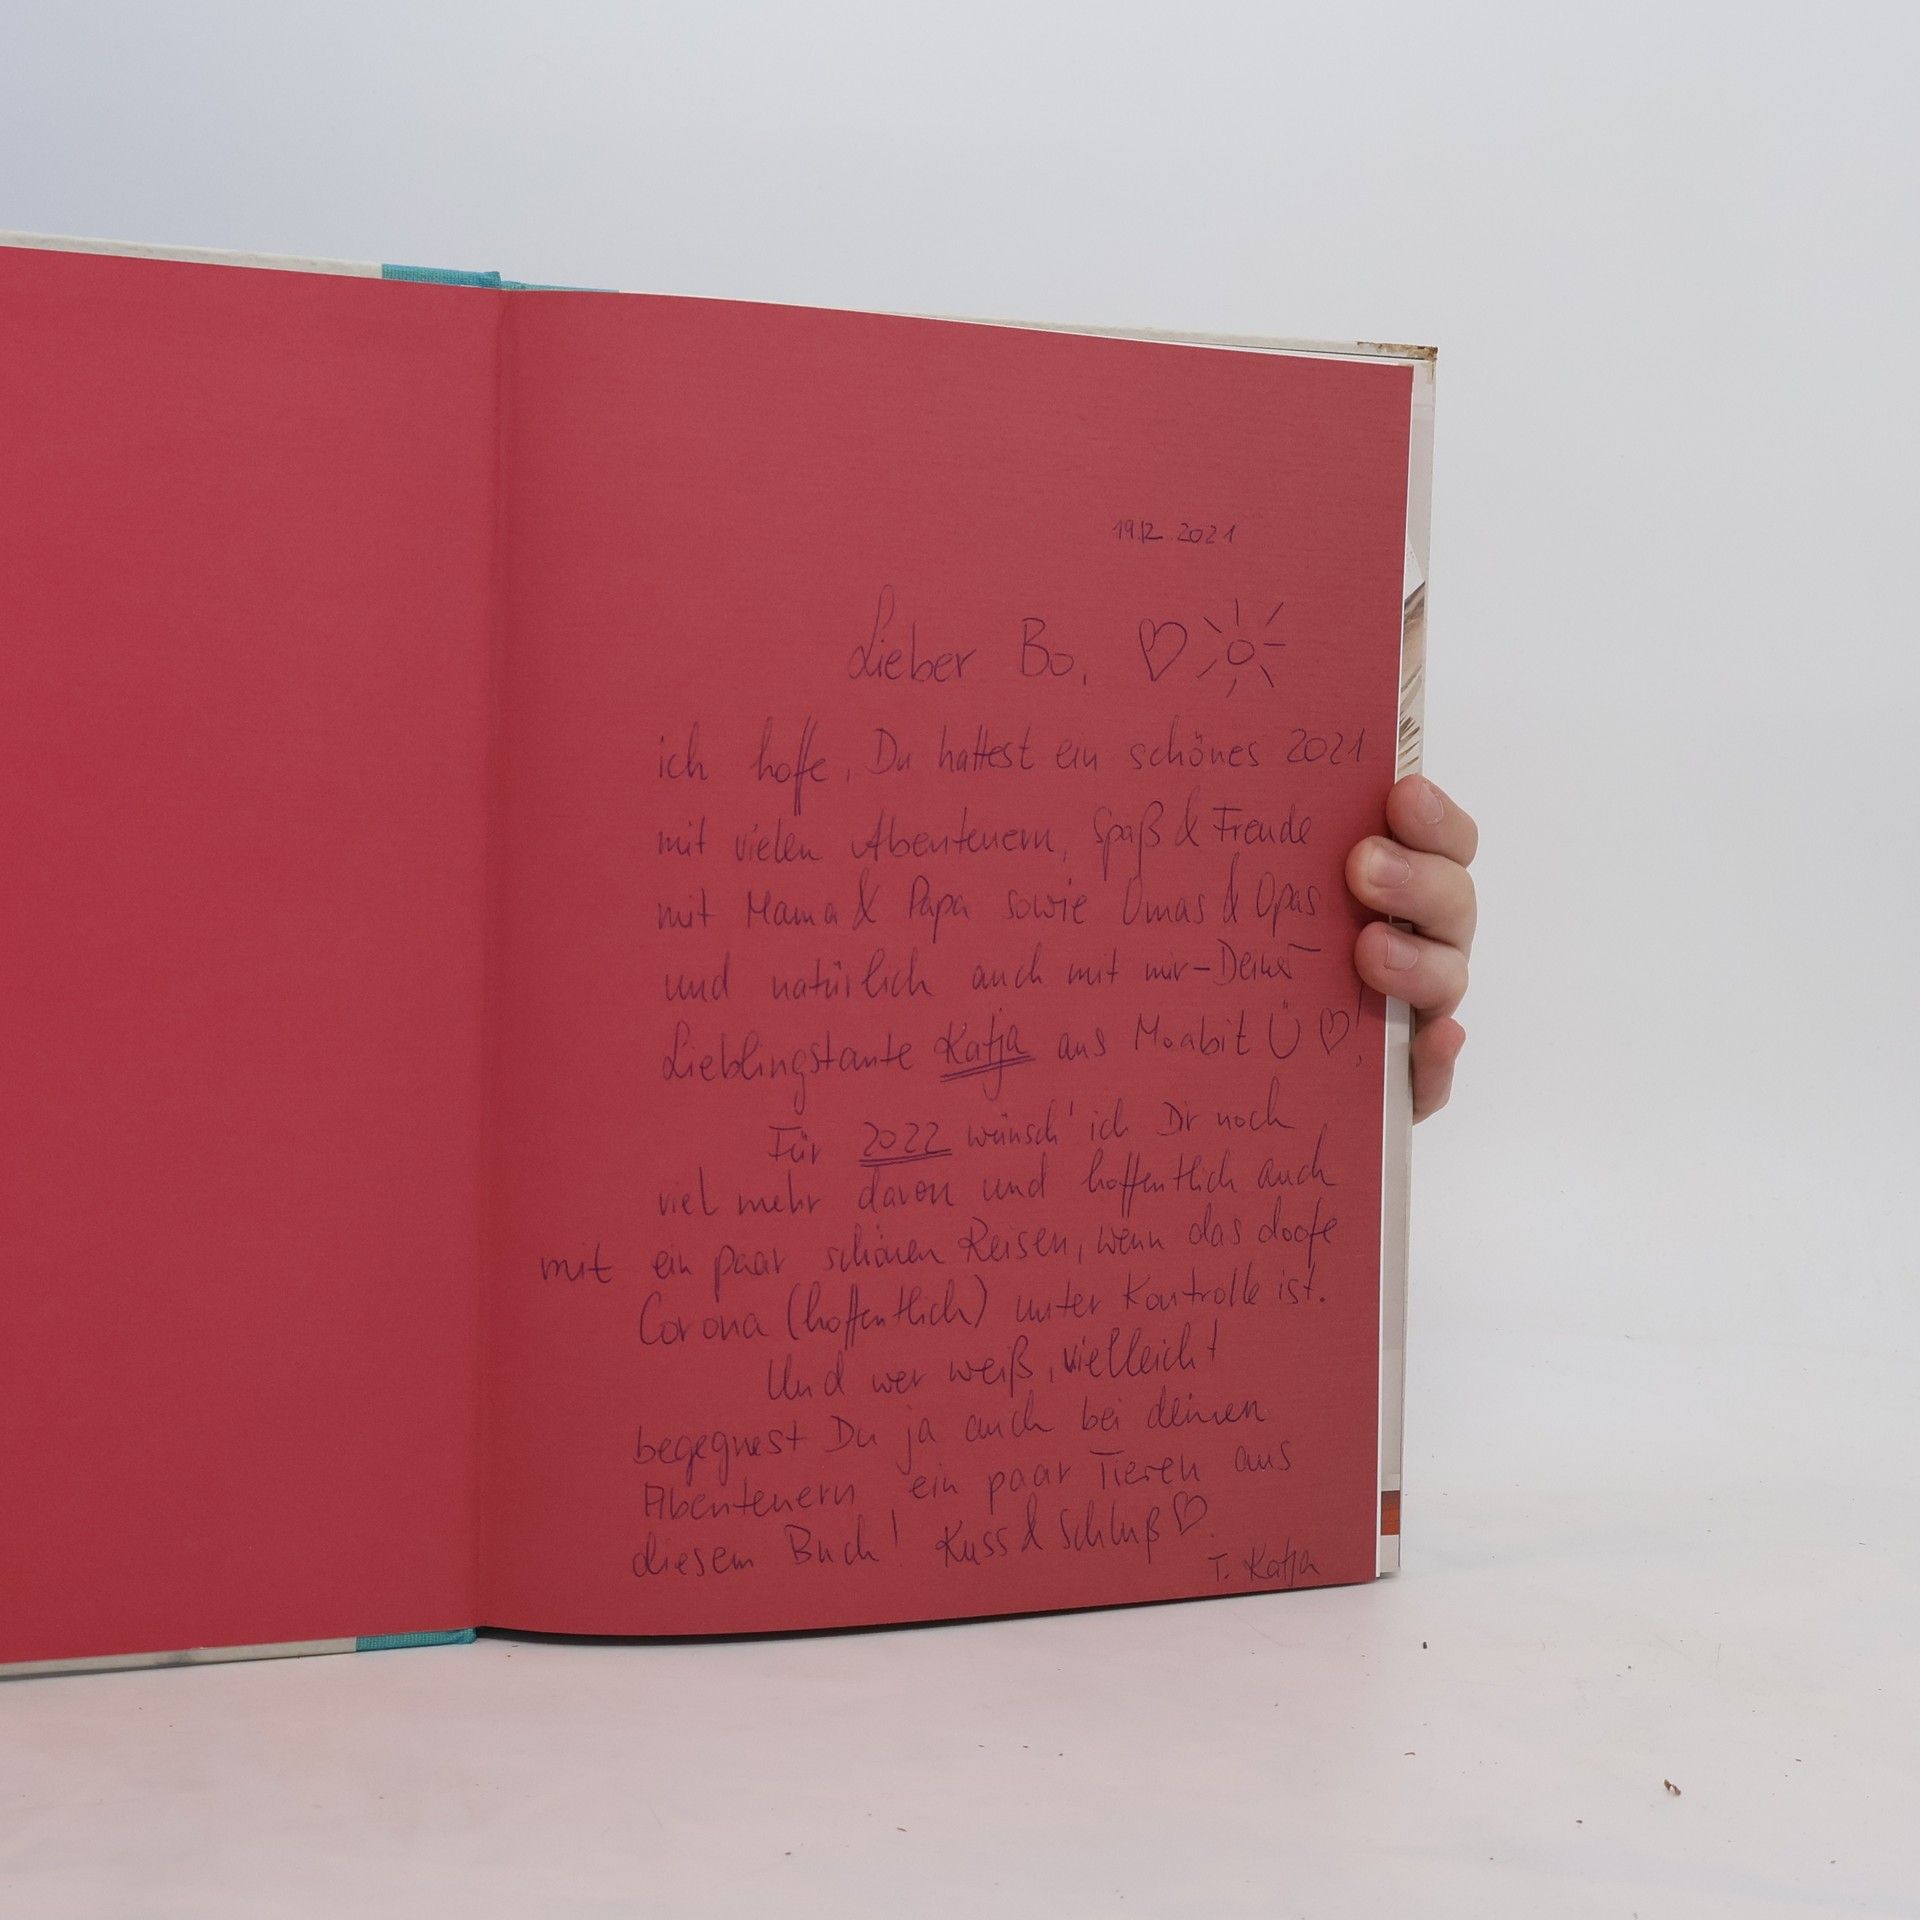 19.12.2021
Lieber Bo,
ich hoffe, Du hattest ein schönes 2021
mit vielen Abenteuern, Spaß & Freude
mit Mama & Papa sowie Omas & Opas
und natürlich auch mit mir – Deiner
Lieblingstante Katja aus Moabit Ü ♡!
Für 2022 wünsch' ich Dir noch
viel mehr davon und hoffentlich auch
mit ein paar schönen Reisen, wenn das doofe
Corona (hoffentlich) unter Kontrolle ist.
Und wer weiß, vielleicht
begegnest Du ja auch bei deinen
Abenteuern ein paar Tieren aus
diesem Buch! Kuss & Schluß ♡.
T. Katja